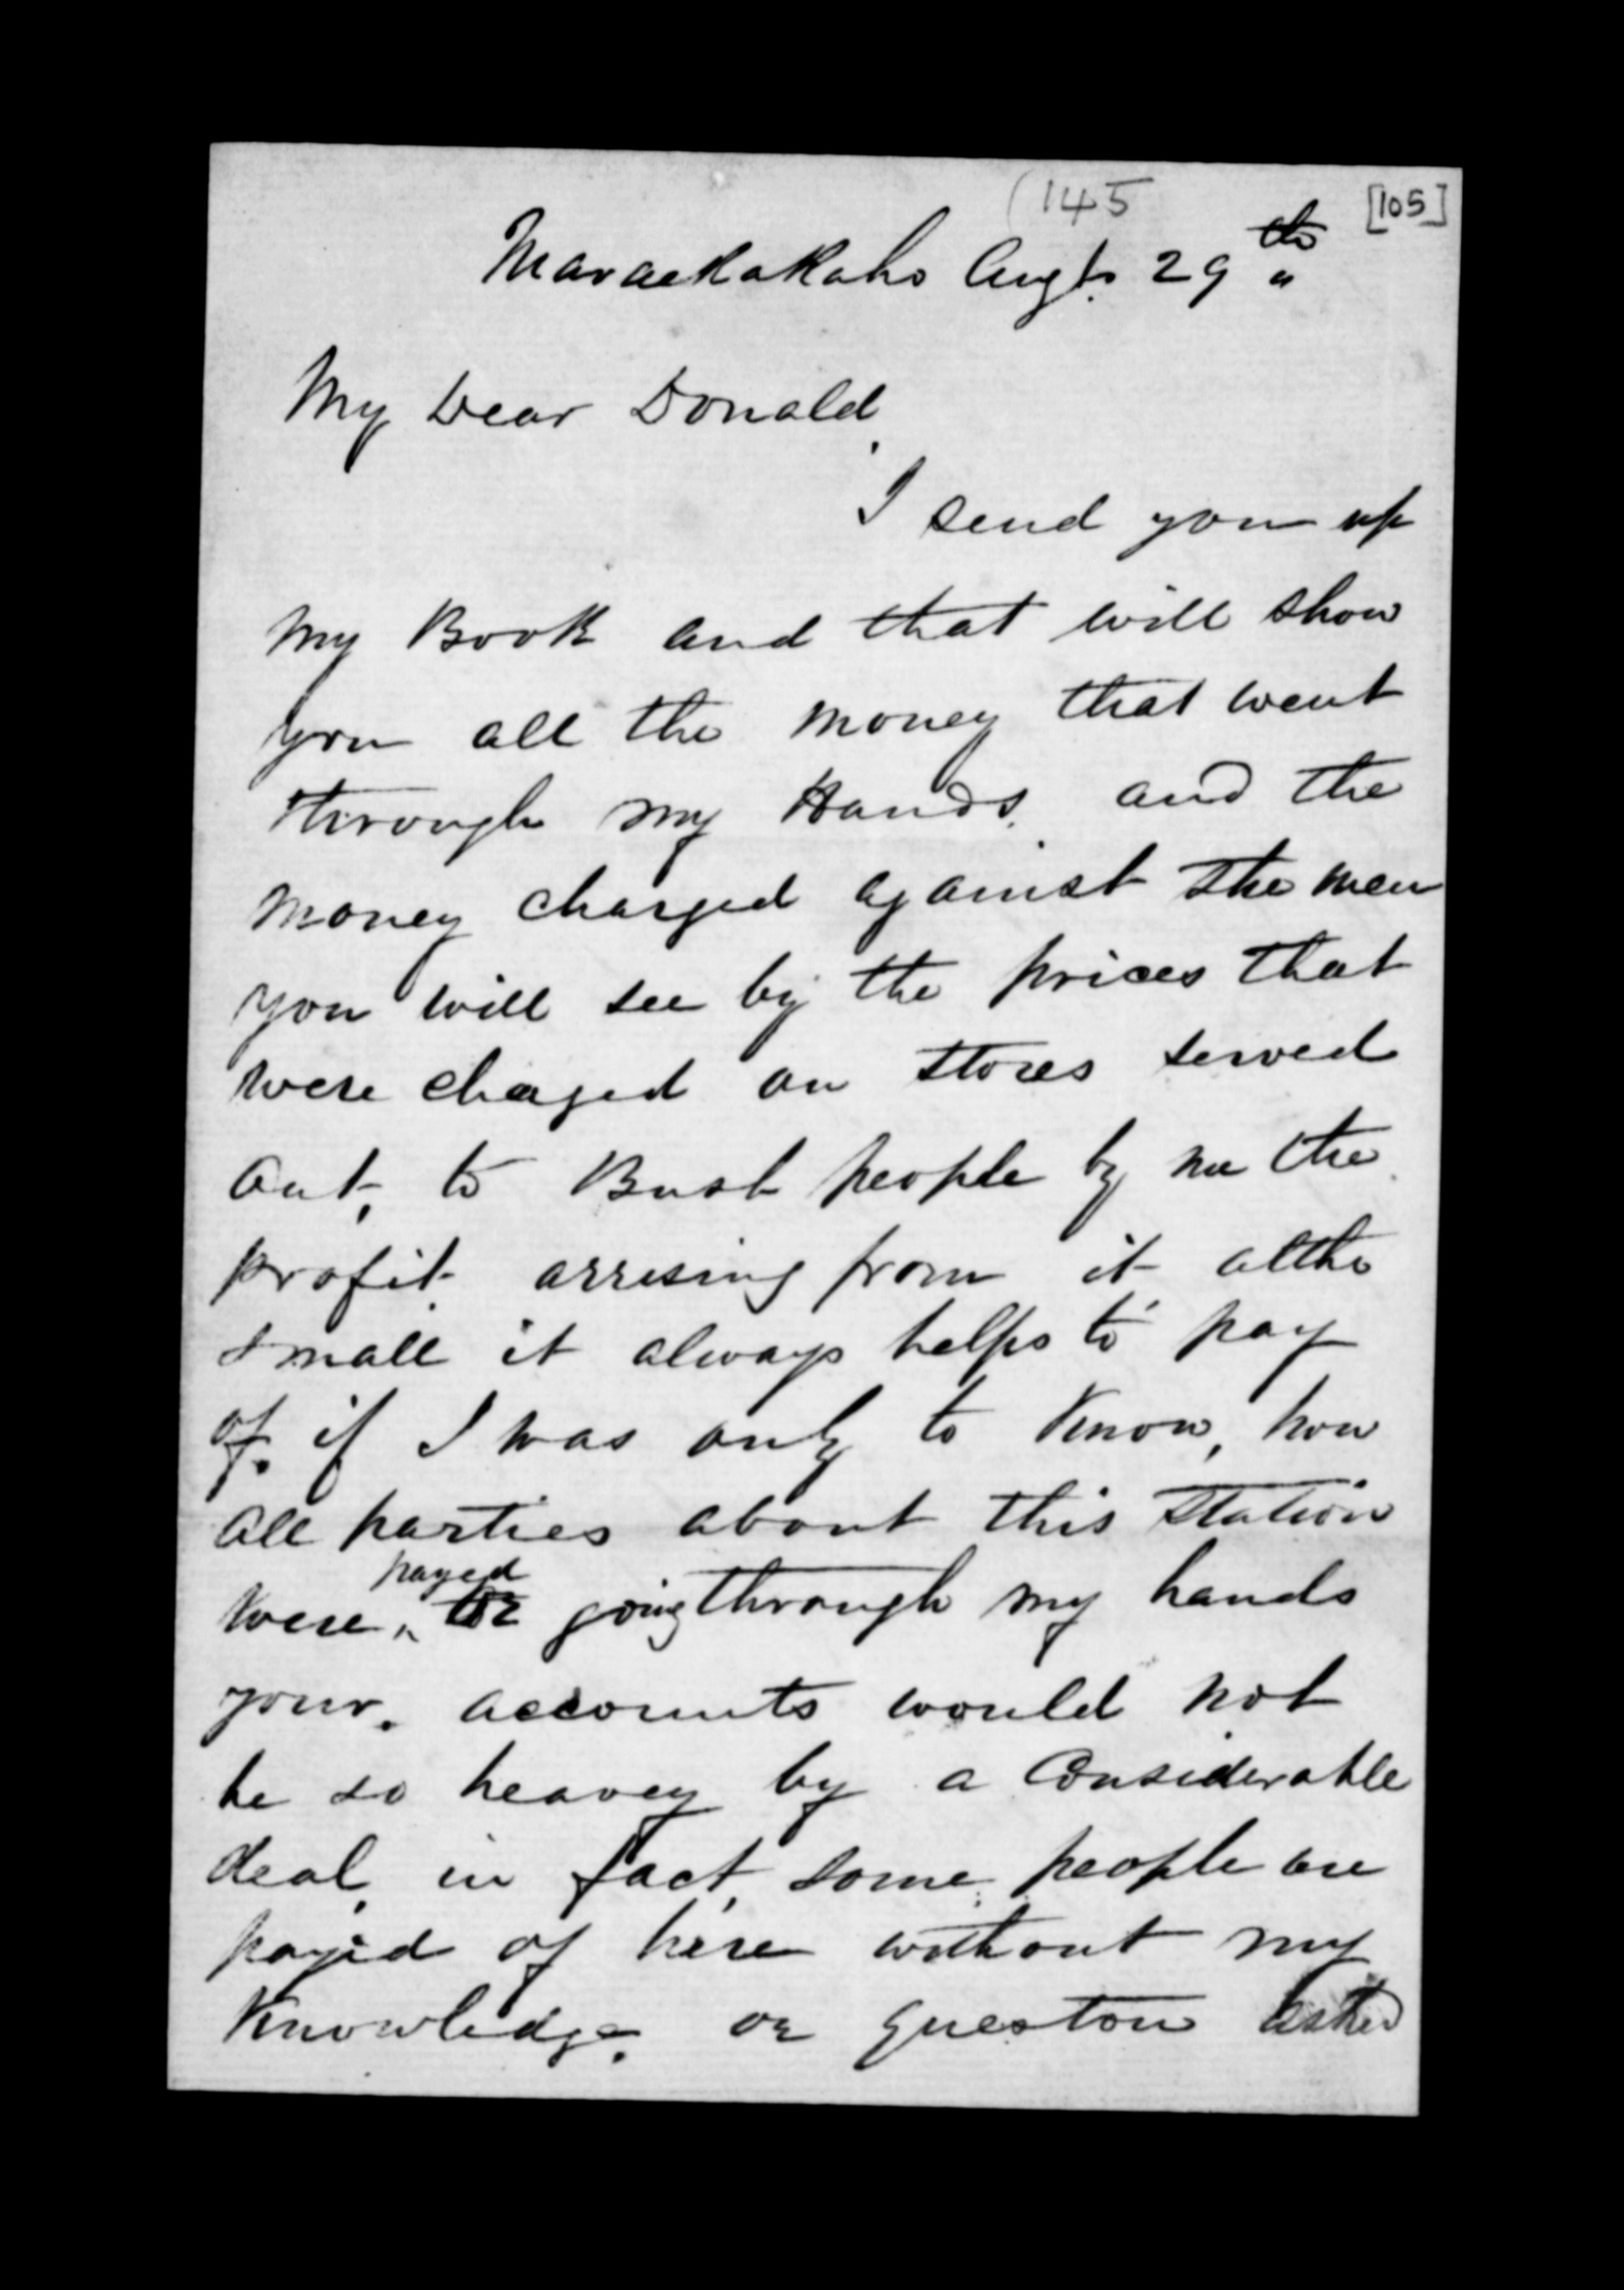 (145 [105]
Maraekakaho Augt. 29th
My Dear Donald
I send you up
my Book and that will show
you all the money that went
through my Hands. and the
money charged against the men
you will see by the prices that
were charged on stores served
out, to Bush people by me the
profit arresing from it altho
small it always helps to pay
of. if I was only to Know, how
all parties about this station
payed
were, or going through my hands
your. accounts would not
be so heavey by a Considerable
deal, in fact, some people are
payed of here without my
Knowledge. or queston asked